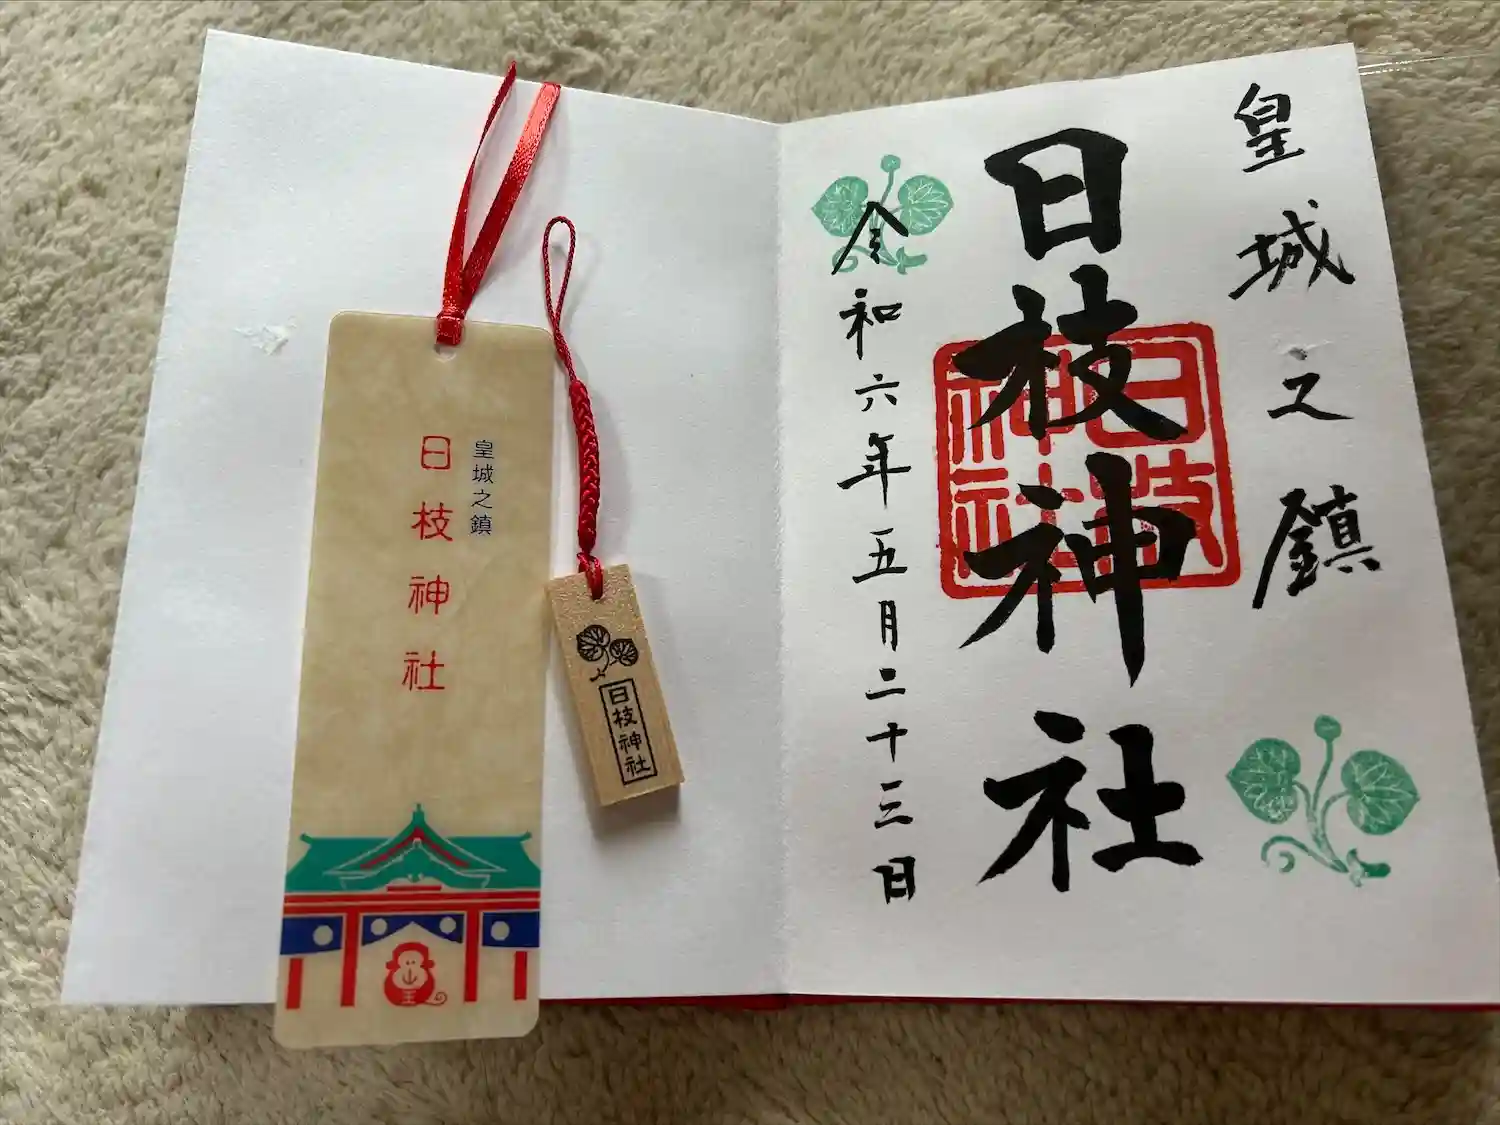 皇城之鎮
日枝神社
日枝神社
令和六年五月二十三日
皇城之鎮
日枝神社
山王
日枝神社